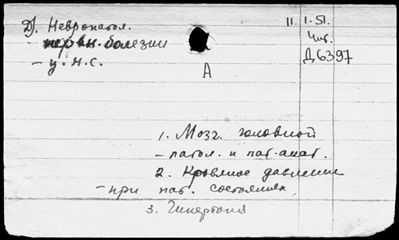 Д). Невропатол. II. 1.51.
нервн. болезни Чит.
- у. н. с. Д6397
А
1. Мозг. головной
- патол. и пат. анат.
2. Кровяное давление
- при пат. состояниях
3. Гипертония